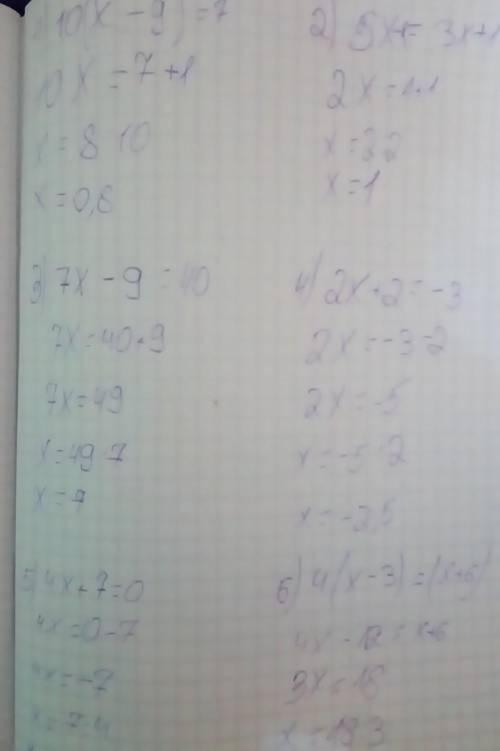 10(x - 9) = 7
10x = 7 + 1
x = 8 10
x = 0,8
2) 5x+ = 3x+1
2x = 1+1
x = 2 2
x = 1
3) 7x - 9 = 40
7x = 40+9
7x = 49
x = 49 7
x = 7
4) 2x+2 = -3
2x = -3-2
2x = -5
x = -5 2
x = -2,5
5) 4x+7=0
4x=0-7
4x=-7
x=-7 4
6) 4(x-3)=(x+6)
4x-12=x+6
3x=18
x=18 3